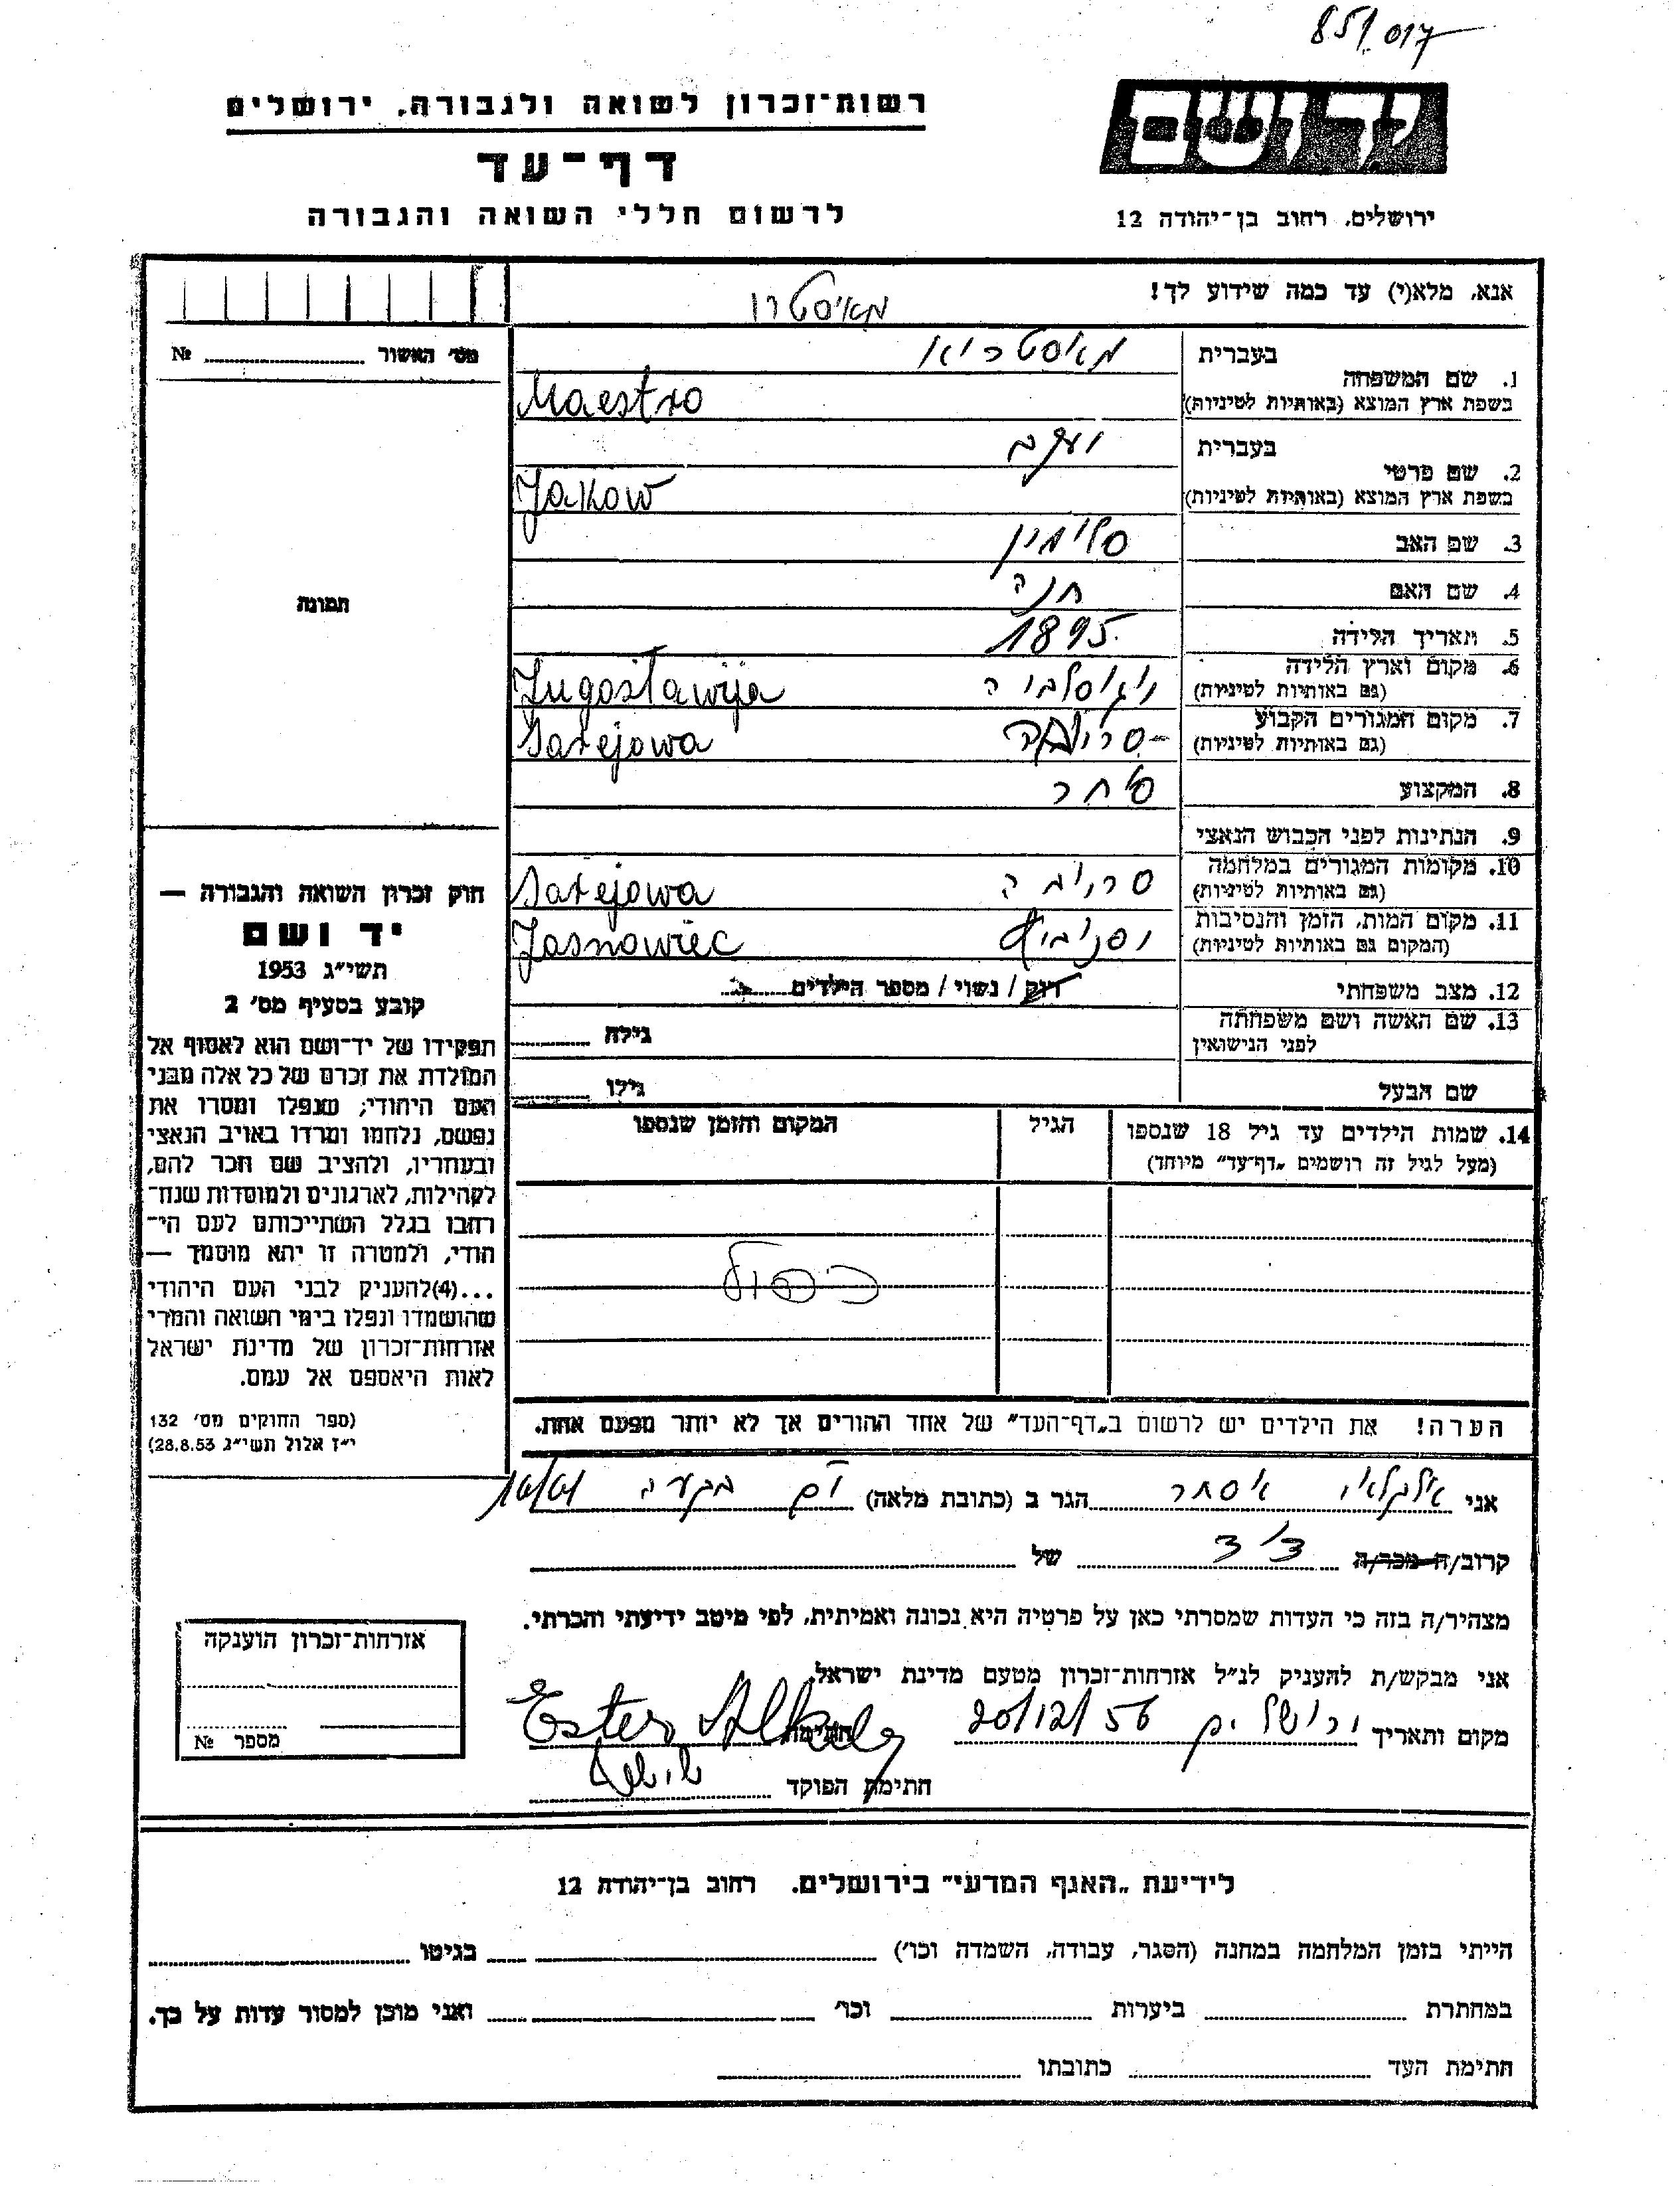 851/017
רשות־זכרון לשואה ולגבורה, ירושלים
דף־עד
לרשום חללי השואה והגבורה
יד ושם
ירושלים, רחוב בן־יהודה 12
אנא, מלא(י) עד כמה שידוע לך!
מאיסטרו
מס' האשור № ..........
1. שם המשפחה בעברית מאסטריאו
בשפת ארץ המוצא (באותיות לטיניות) Maestro
2. שם פרטי בעברית יעקב
בשפת ארץ המוצא (באותיות לטיניות) Jakow
3. שם האב
4. שם האם חנה
תמונה
5. תאריך הלידה 1895
6. מקום וארץ הלידה (גם באותיות לטיניות) יוגוסלביה Jugoslawija
7. מקום המגורים הקבוע (גם באותיות לטיניות) Sarejowa
8. המקצוע סוחר
9. הנתינות לפני הכבוש הנאצי
10. מקומות המגורים במלחמה (גם באותיות לטיניות) סריובה Sarejowa
11. מקום המות, הזמן והנסיבות (המקום גם באותיות לטיניות) Jasnowiec
12. מצב משפחתי רווק / נשוי / מספר הילדים ..........
13. שם האשה ושם משפחתה לפני הנישואין גילה ..........
שם הבעל גילו ..........
14. שמות הילדים עד גיל 18 שנספו הגיל המקום והזמן שנספו
(מעל לגיל זה רושמים „דף־עד" מיוחד)
כפול
חוק זכרון השואה והגבורה —
יד ושם
תשי"ג 1953
קובע בסעיף מס' 2
תפקידו של יד־ושם הוא לאסוף אל
המולדת את זכרם של כל אלה מבני
העם היהודי; שנפלו ומסרו את
נפשם, נלחמו ומרדו באויב הנאצי
ובעוזריו, ולהציב שם וזכר להם,
לקהילות, לארגונים ולמוסדות שנח־
רבו בגלל השתייכותם לעם הי־
הודי, ולמטרה זו יהא מוסמך —
...(4)להעניק לבני העם היהודי
שהושמדו ונפלו בימי השואה והמרי
אזרחות־זכרון של מדינת ישראל
לאות היאספם אל עמם.
(ספר החוקים מס' 132
י"ז אלול תשי"ג 28.8.53)
הערה! את הילדים יש לרשום ב„דף־העד" של אחד ההורים אך לא יותר מפעם אחת.
אני אלקלאי אסתר הגר ב (כתובת מלאה) בקעה
קרוב/ה מכר/ה דוד של ..........
מצהיר/ה בזה כי העדות שמסרתי כאן על פרטיה היא נכונה ואמיתית, לפי מיטב ידיעתי והכרתי.
אני מבקש/ת להעניק לנ"ל אזרחות־זכרון מטעם מדינת ישראל.
מקום ותאריך ירושלים 20/12/56 חתימה Ester Alkalaj
חתימת הפוקד
אזרחות־זכרון הוענקה
מספר №
לידיעת „האגף המדעי" בירושלים, רחוב בן־יהודה 12
הייתי בזמן המלחמה במחנה (הסגר, עבודה, השמדה וכו') .......... בגיטו ..........
במחתרת .......... ביערות .......... וכו' .......... ואני מוכן למסור עדות על כך.
חתימת העד .......... כתובתו ..........